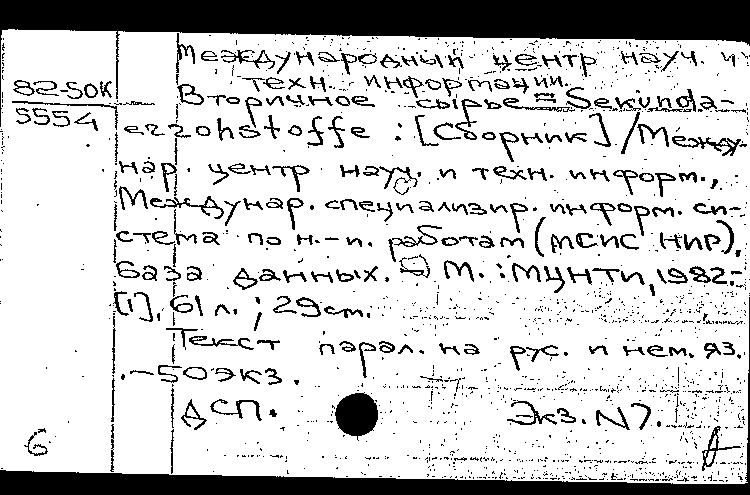 Международный центр науч. и
техн. информации.
82-50К
5554
Вторичное сырье = Sekunda-
erzohstoffe : [Сборник] / Между-
нар. центр науч. и техн. информ.,
Междунар. специализир. информ. си-
стема по н.-и. работам (МСИС НИР),
база данных. — М. : МЦНТИ, 1982.-
[1], 61 л. ; 29 см.
Текст парал. на рус. и нем. яз.
.-50 экз.
ДСП.
Экз. N7.
6